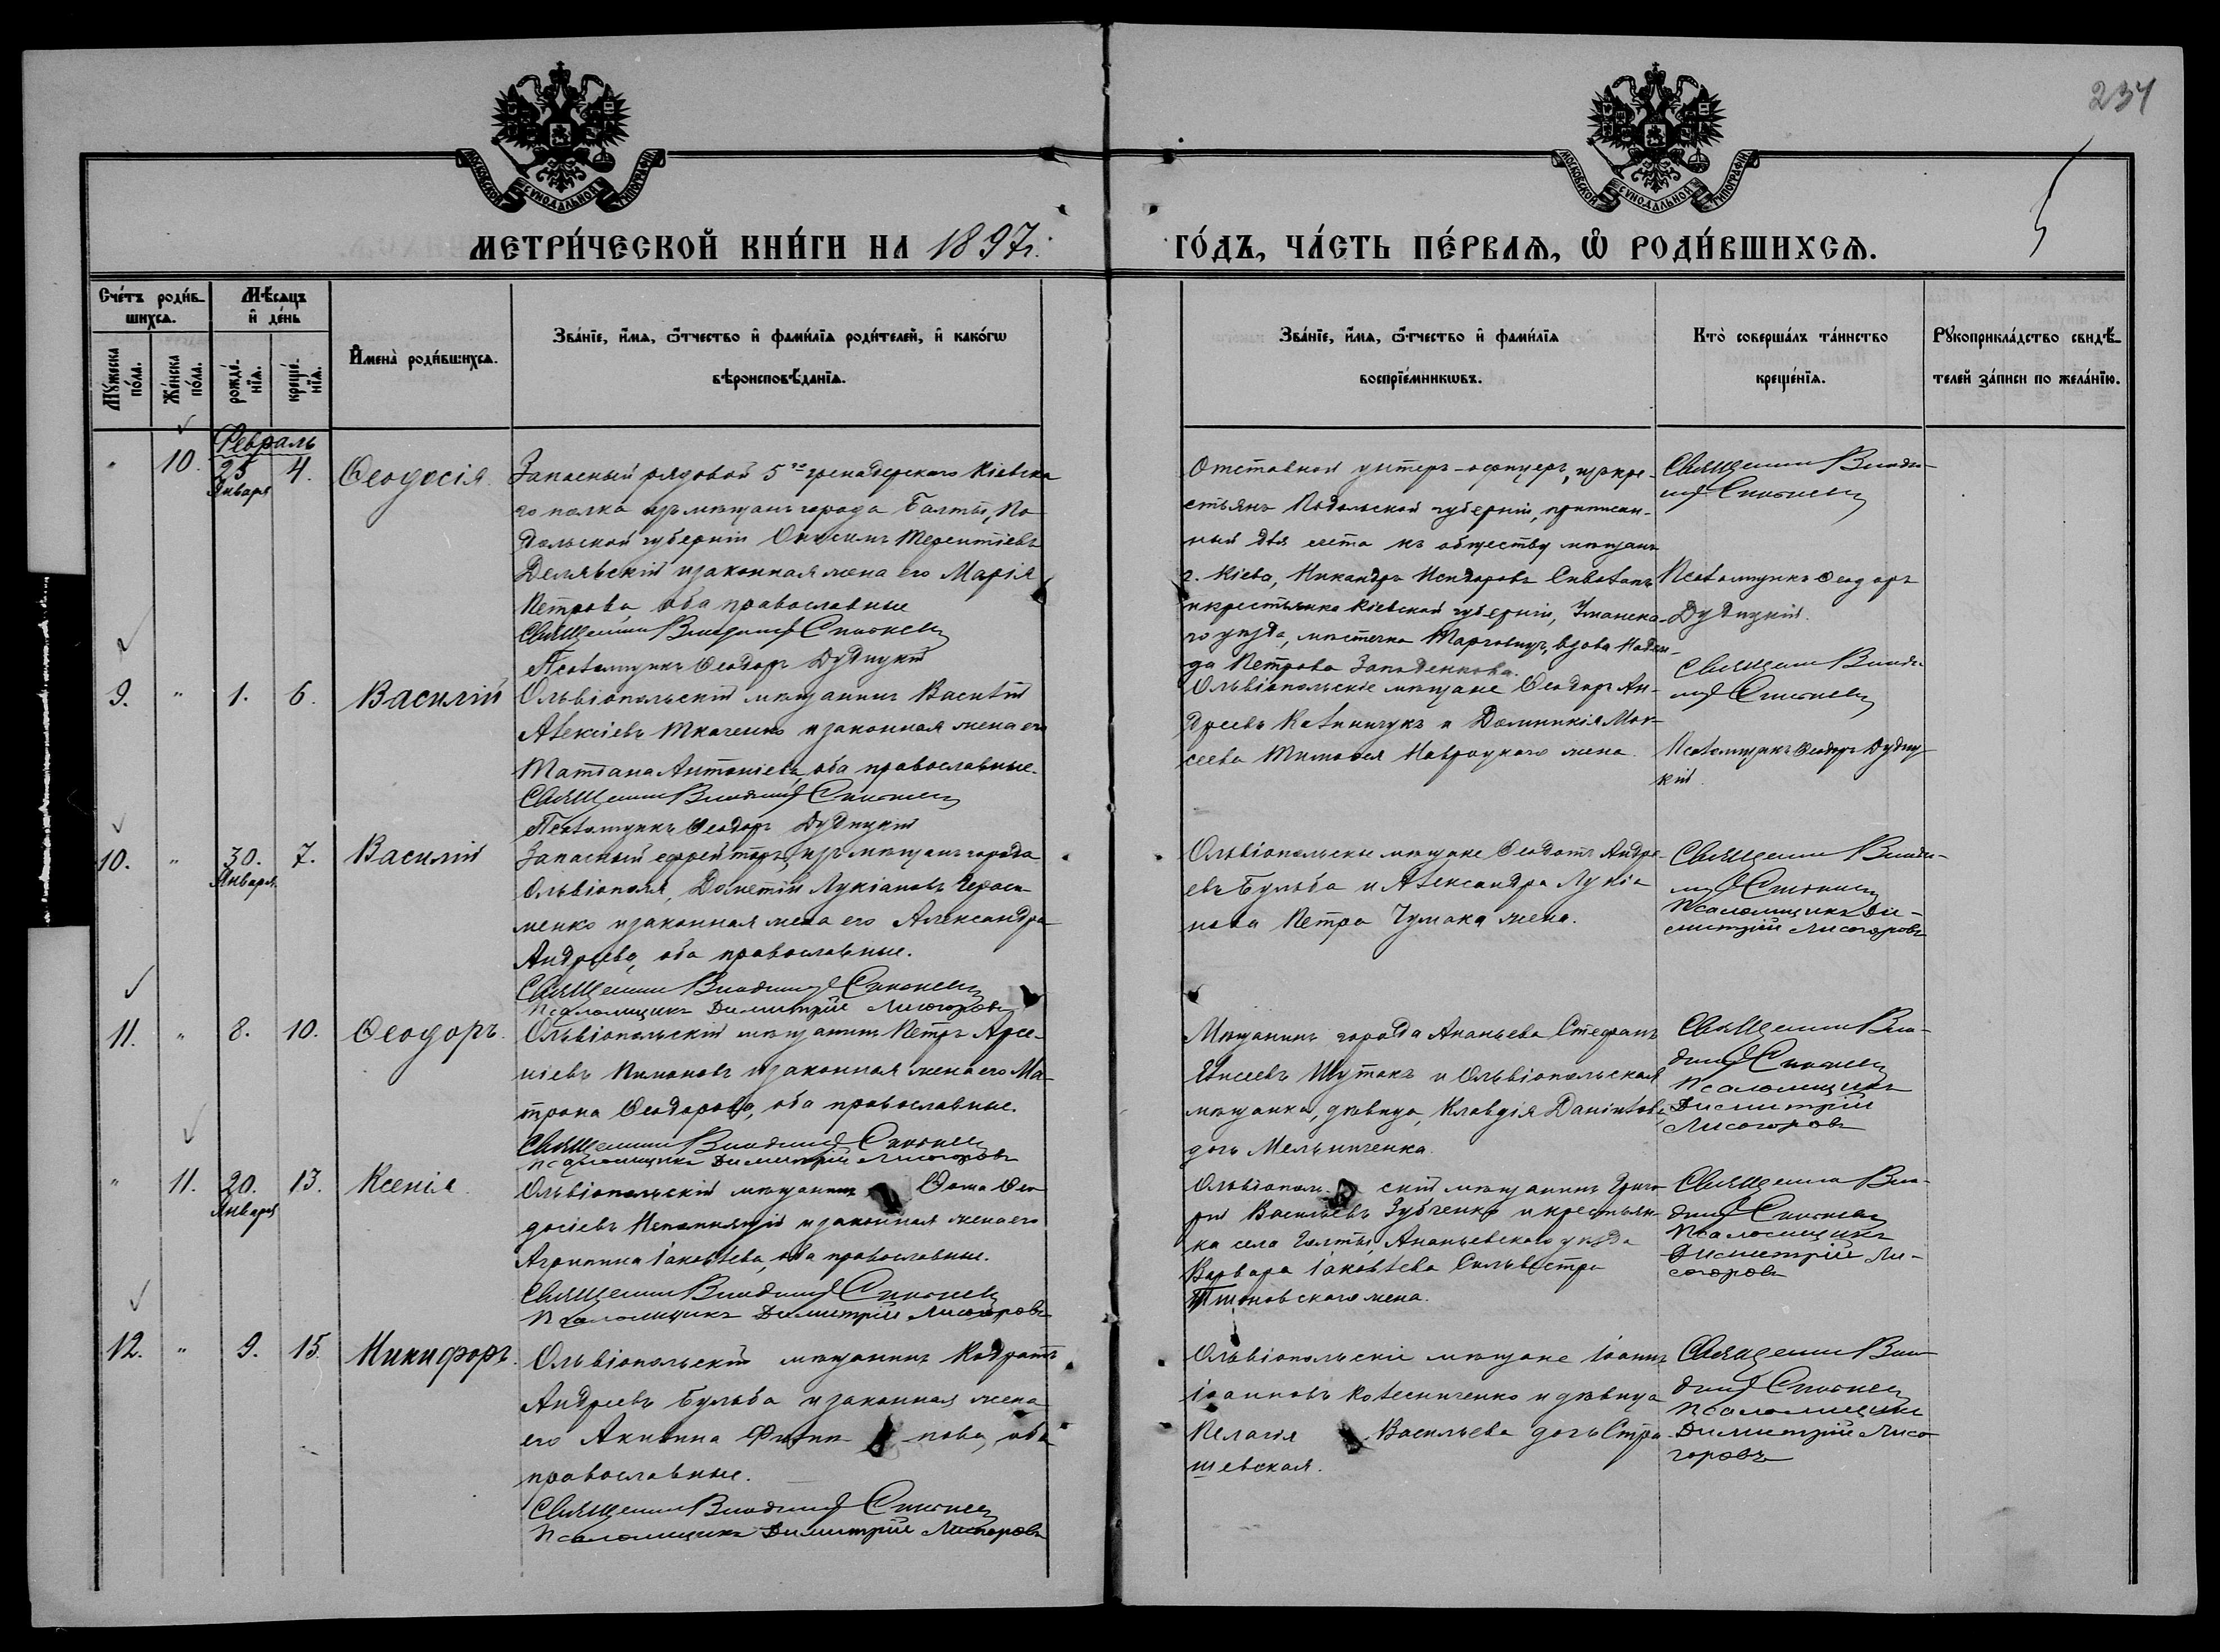 234
5
МОСКОВСКОЙ СУНОДАЛЬНОЙ ТИПОГРАФІИ
МОСКОВСКОЙ СУНОДАЛЬНОЙ ТИПОГРАФІИ
МЕТРИ́ЧЕСКОЙ КНИ́ГИ НА 1897 г.
ГО́ДЪ, ЧА́СТЬ ПЕ́РВАѦ, Ѡ РОДИ́ВШИХСѦ.
Счéтъ роди́в-
шихсѧ.
Мꙋ́жеска по́ла.
Же́нска по́ла.
Мѣ́сѧцъ и де́нь
рожде́-нїѧ.
креще́-нїѧ.
Имена̀ роди́вшихсѧ.
Зва́нїе, и́мѧ, ѻ́тчество и фами́лїѧ роди́телей, и како́гѡ
вѣроисповѣ́данїѧ.
Зва́нїе, и́мѧ, ѻ́тчество и фами́лїѧ
воспрїе́мникѡвъ.
Кто̀ соверша́лъ та́инство
креще́нїѧ.
Рꙋкоприкла́дство свидѣ́-
телей за́писи по жела́нїю.
Февраль
" 10. 25 Января 4. Ѳеодосія.
Запасный рядовой 5го гренадерскаго Кіевска
го полка изъ мѣщанъ города Балты, По
дольской губерніи Онисимъ Терентіевъ
Делявскій и законная жена его Марія
Петрова оба православные
Священникъ Владимір
Псаломщикъ Ѳеодоръ Дудицкій
Отставной унтеръ-офицеръ, изъ кре-
стьянъ Подольской губерніи, приписан-
ный для счета къ обществу мѣщанъ
г. Кіева, Никандръ Исидоровъ
и крестьянка Кіевской губерніи, Уманска-
го уѣзда, мѣстечка Торговицъ, вдова Надеж-
да Петрова
Священникъ Влади-
мір
Псаломщикъ Ѳеодоръ
Дудицкій.
9. " 1. 6. Василій
Ольвіопольскій мѣщанинъ Василій
Алексіевъ Ткаченко и законная жена его
Татіана Антоніева, оба православные.
Священникъ Владимір
Псаломщикъ Ѳеодоръ Дудицкій
Ольвіопольскіе мѣщане Ѳеодоръ Ан-
дреевъ Калиничукъ и Домникія Мои-
сеева Тимоѳея Навроцкаго жена
Священникъ Влади-
мір
Псаломщикъ Ѳеодоръ Дудиц
кій.
10. " 30. Января. 7. Василій
Запасный ефрейторъ, изъ мѣщанъ города
Ольвіополя, Дометій Лукіановъ Гераси-
менко и законная жена его Александра
Андреева, оба православные.
Священникъ Владимір
Псаломщикъ Димитрій Лисогоровъ
Ольвіопольскіе мѣщане Ѳеодотъ Андре-
евъ Бульба и Александра Лукіа
нова Петра Чумака жена.
Священникъ Влади-
мір
Псаломщикъ Ди-
митрій Лисогоровъ
11. " 8. 10. Ѳеодоръ.
Ольвіопольскій мѣщанинъ Петръ Арсе-
ніевъ Пимоновъ и законная жена его Ма-
трона Ѳеодорова, оба православные.
Священникъ Владимір
Псаломщикъ Димитрій Лисогоровъ
Мѣщанинъ города Ананьева Стефанъ
Евсеевъ Шутакъ и Ольвіопольская
мѣщанка, дѣвица, Клавдія Даніилова
дочь Мельниченка.
Священникъ Вла-
димір
Псаломщикъ
Димитрій
Лисогоровъ
" 11. 20. Января 13. Ксенія.
Ольвіопольскій мѣщанинъ Ѳома Ѳео
досіевъ и законная жена его
Агрипина Іаковлева, оба православные.
Священникъ Владимір
Псаломщикъ Димитрій Лисогоровъ
Ольвіополь- скій мѣщанинъ Григо
рій Васильевъ Зубченко и крестьян-
ка села Голты, Ананьевскаго уѣзда
Варвара Іаковлева Сильвестра
жена.
Священникъ Вла-
димір
Псаломщикъ
Димитрій Ли-
согоровъ
12. " 9. 15. Никифоръ.
Ольвіопольскій мѣщанинъ Кодратъ
Андреевъ Бульба и законная жена
его Акилина Филип- пова, оба
православные.
Священникъ Владимір
Псаломщикъ Димитрій Лисогоровъ
Ольвіопольскіе мѣщане Іоаннъ
Іоанновъ Колесниченко и дѣвица
Пелагія Васильева дочь Стра-
шевская.
Священникъ Вла-
димір
Псаломщикъ
Димитрій Лисо
горовъ